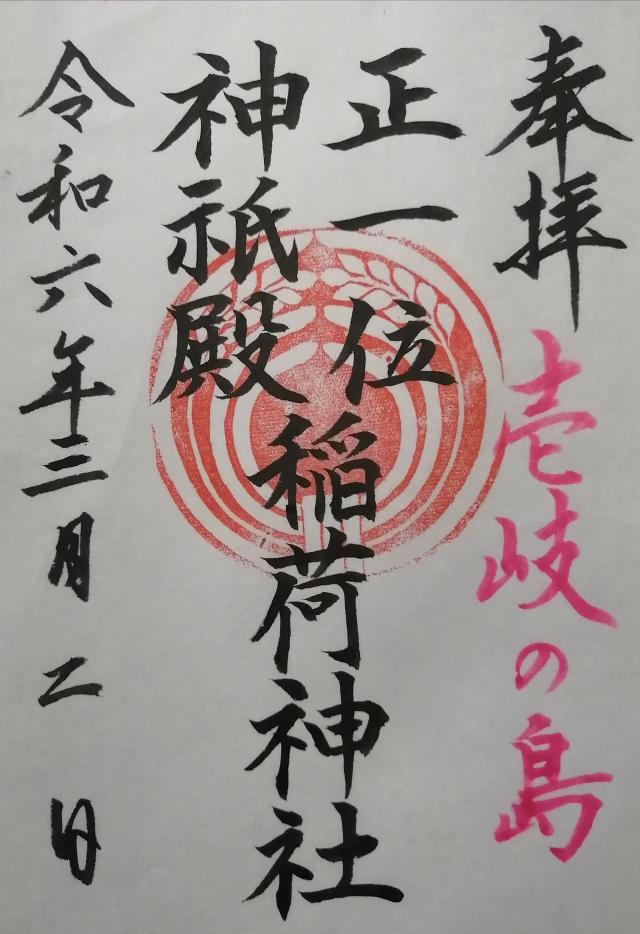 奉拝
壱岐の島
正一位
神祇殿
稲荷神社
令和六年三月二日